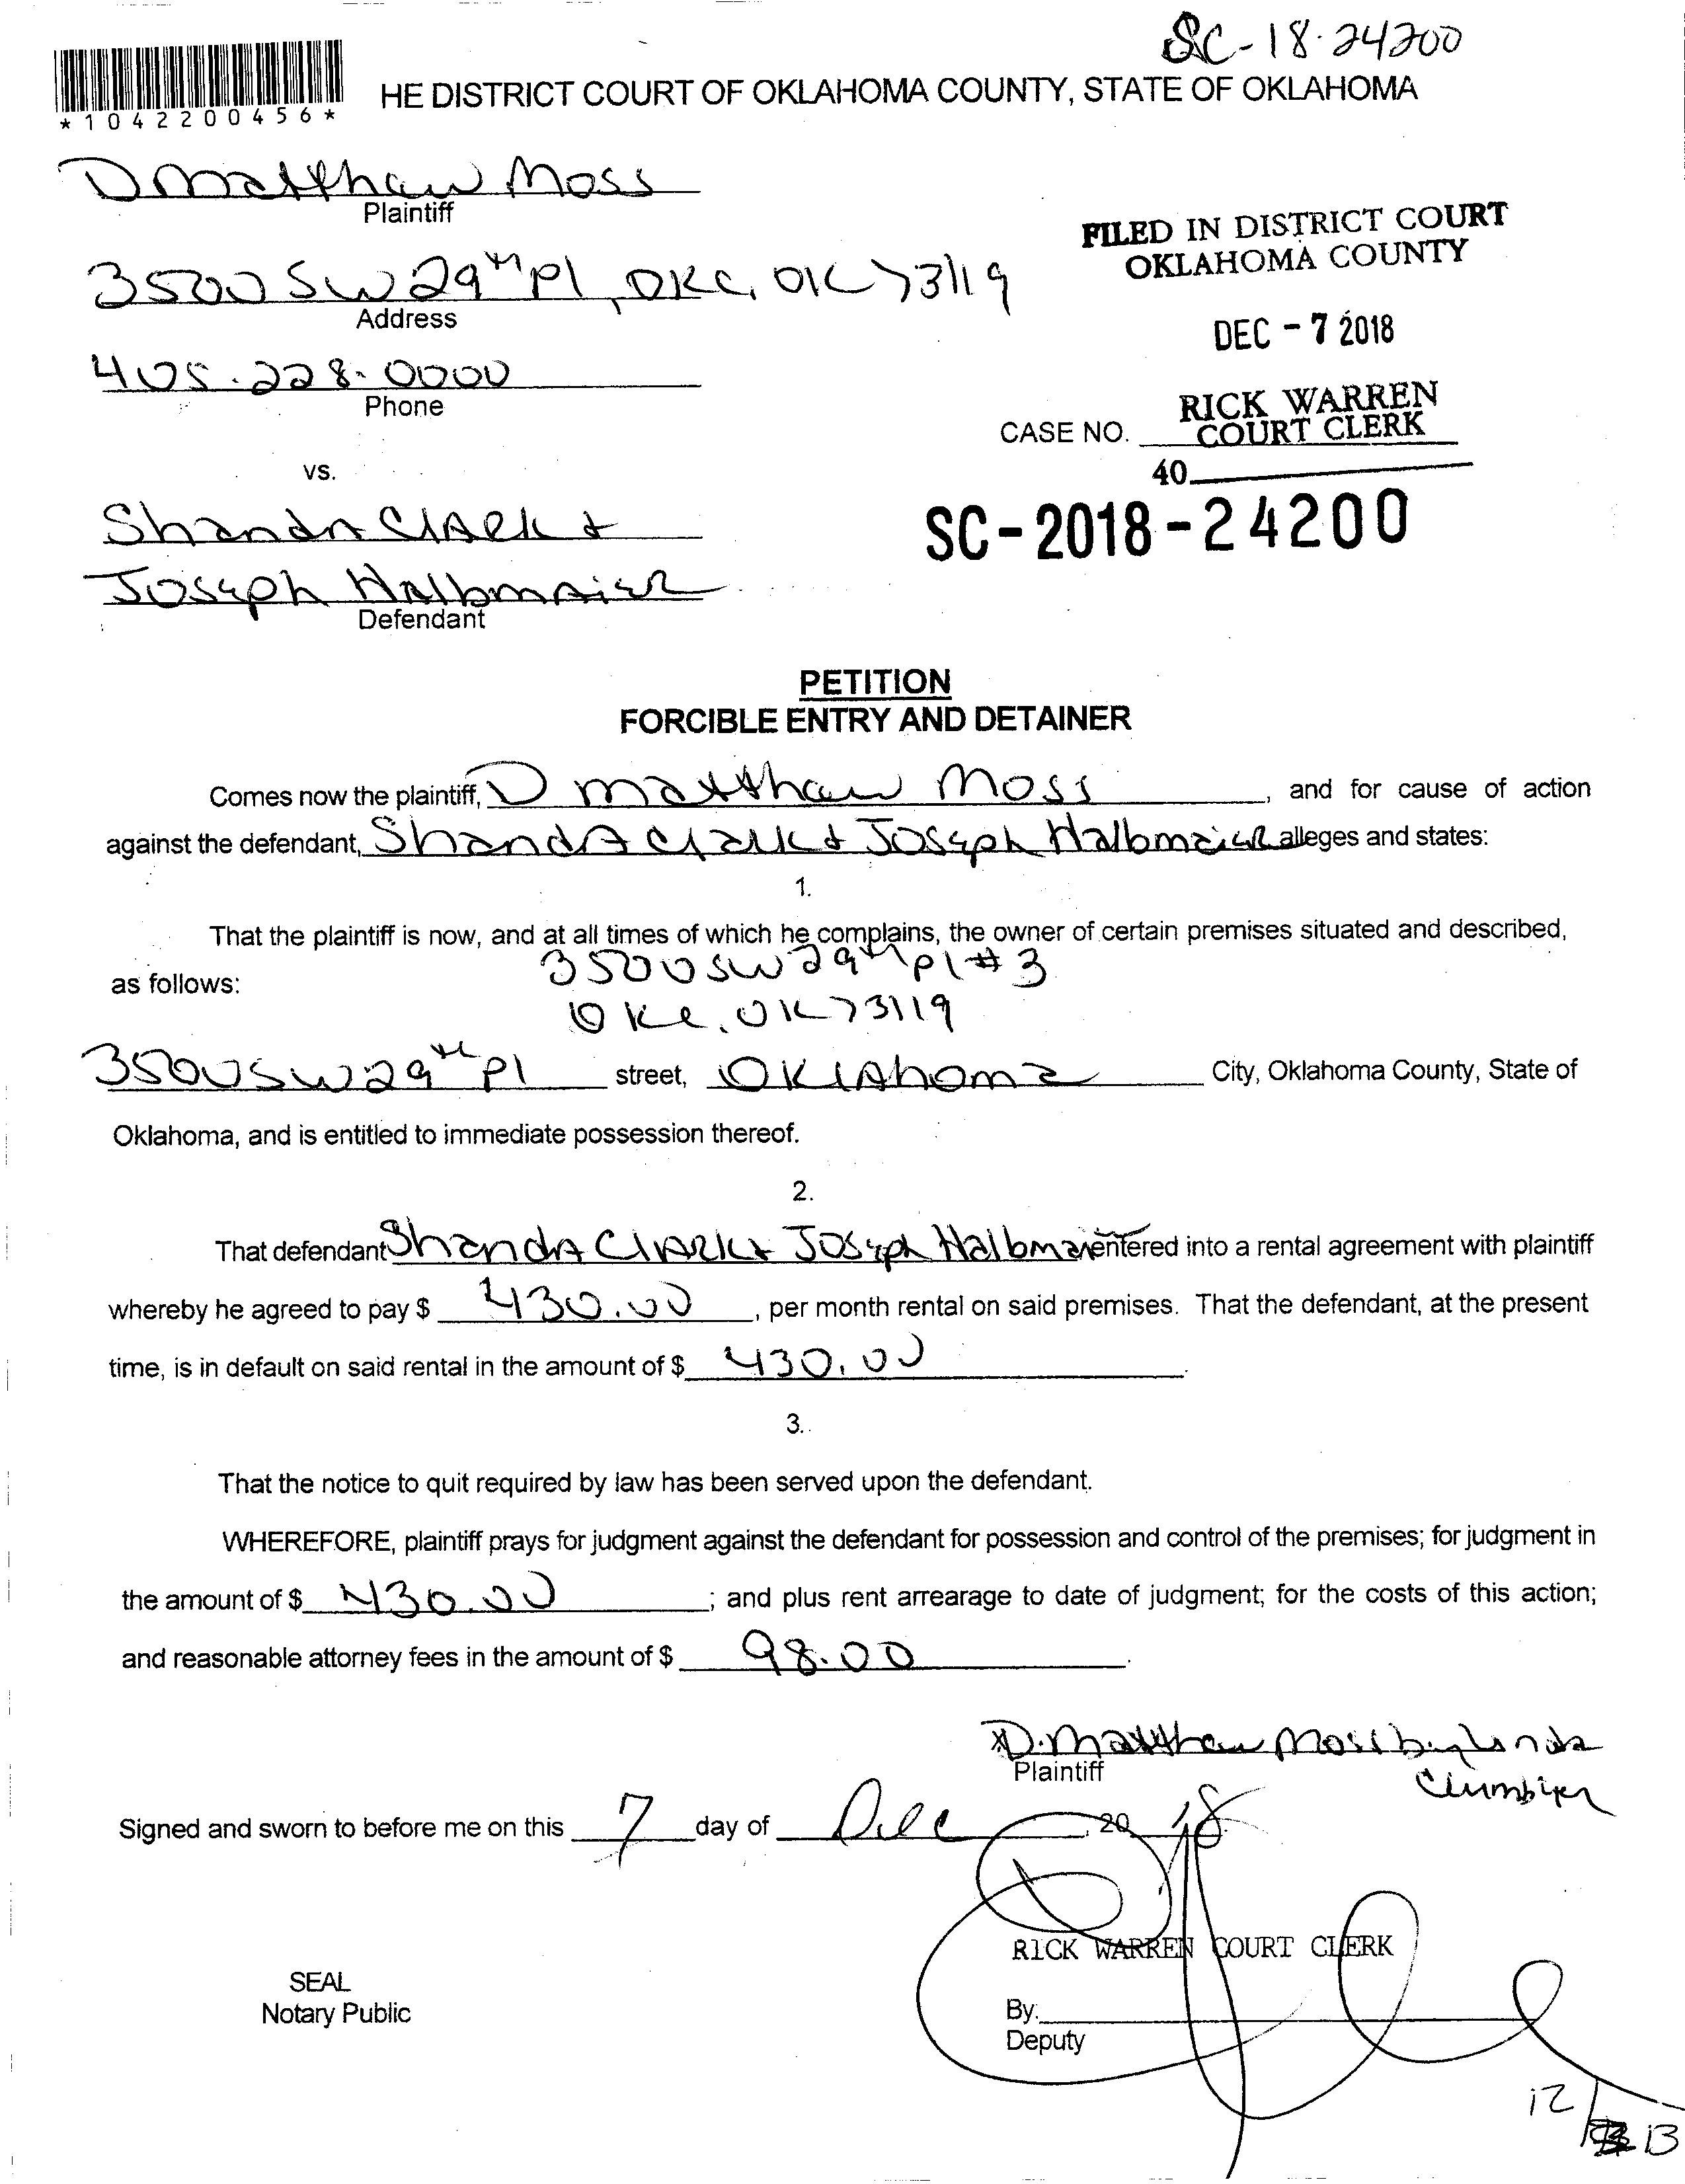 SC-18-24200
*1042200456*
HE DISTRICT COURT OF OKLAHOMA COUNTY, STATE OF OKLAHOMA
D Matthew Moss
Plaintiff
3500 SW 29th Pl, OKC, OK 73119
Address
405.228.0000
Phone
FILED IN DISTRICT COURT
OKLAHOMA COUNTY
DEC - 7 2018
RICK WARREN
CASE NO. COURT CLERK
40
SC-2018-24200
vs.
Shanda Clark &
Joseph Halbmaier
Defendant
PETITION
FORCIBLE ENTRY AND DETAINER
Comes now the plaintiff, D Matthew Moss, and for cause of action
against the defendant, Shanda Clark & Joseph Halbmaier alleges and states:
1.
That the plaintiff is now, and at all times of which he complains, the owner of certain premises situated and described,
as follows: 3500 SW 29th Pl #3
OKC, OK 73119
3500 SW 29th Pl street, Oklahoma City, Oklahoma County, State of
Oklahoma, and is entitled to immediate possession thereof.
2.
That defendant Shanda Clark & Joseph Halbmaier entered into a rental agreement with plaintiff
whereby he agreed to pay $ 430.00, per month rental on said premises. That the defendant, at the present
time, is in default on said rental in the amount of $ 430.00.
3.
That the notice to quit required by law has been served upon the defendant.
WHEREFORE, plaintiff prays for judgment against the defendant for possession and control of the premises; for judgment in
the amount of $ 430.00; and plus rent arrearage to date of judgment; for the costs of this action;
and reasonable attorney fees in the amount of $ 98.00.
D. Matthew Moss by Linda
Plaintiff
Signed and sworn to before me on this 7 day of Dec, 2018
RICK WARREN COURT CLERK
SEAL
Notary Public
By:
Deputy
12/13